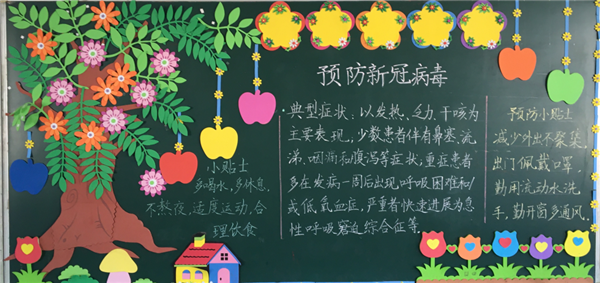 预防新冠病毒
小贴士
多喝水,多休息,
不熬夜,适度运动,合
理饮食
·典型症状:以发热、乏力、干咳为
主要表现,少数患者伴有鼻塞、流
涕、咽痛和腹泻等症状,重症患者
多在发病一周后出现呼吸困难和/
或低氧血症,严重者快速进展为急
性呼吸窘迫综合征等。
预防小贴士
减少外出不聚集,
出门佩戴口罩
勤用流动水洗
手,勤开窗多通风。